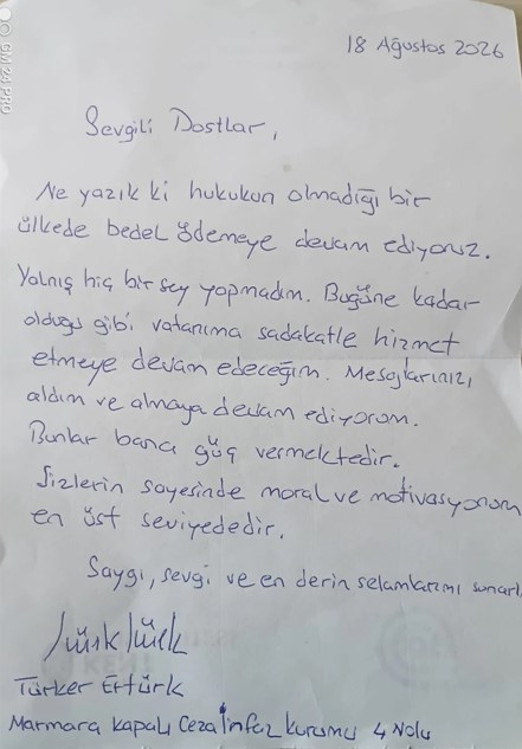 18 Ağustos 2026
Sevgili Dostlar,
Ne yazık ki hukukun olmadığı bir
ülkede bedel ödemeye devam ediyoruz.
Yalnış hiç bir şey yapmadım. Bugüne kadar
olduğu gibi vatanıma sadakatle hizmet
etmeye devam edeceğim. Mesajlarınızı
aldım ve almaya devam ediyorum.
Bunlar bana güç vermektedir.
Sizlerin sayesinde moral ve motivasyonum
en üst seviyededir.
Saygı, sevgi ve en derin selamlarımı sunarı
Türker Ertürk
Marmara Kapalı Ceza İnfaz Kurumu 4 Nolu